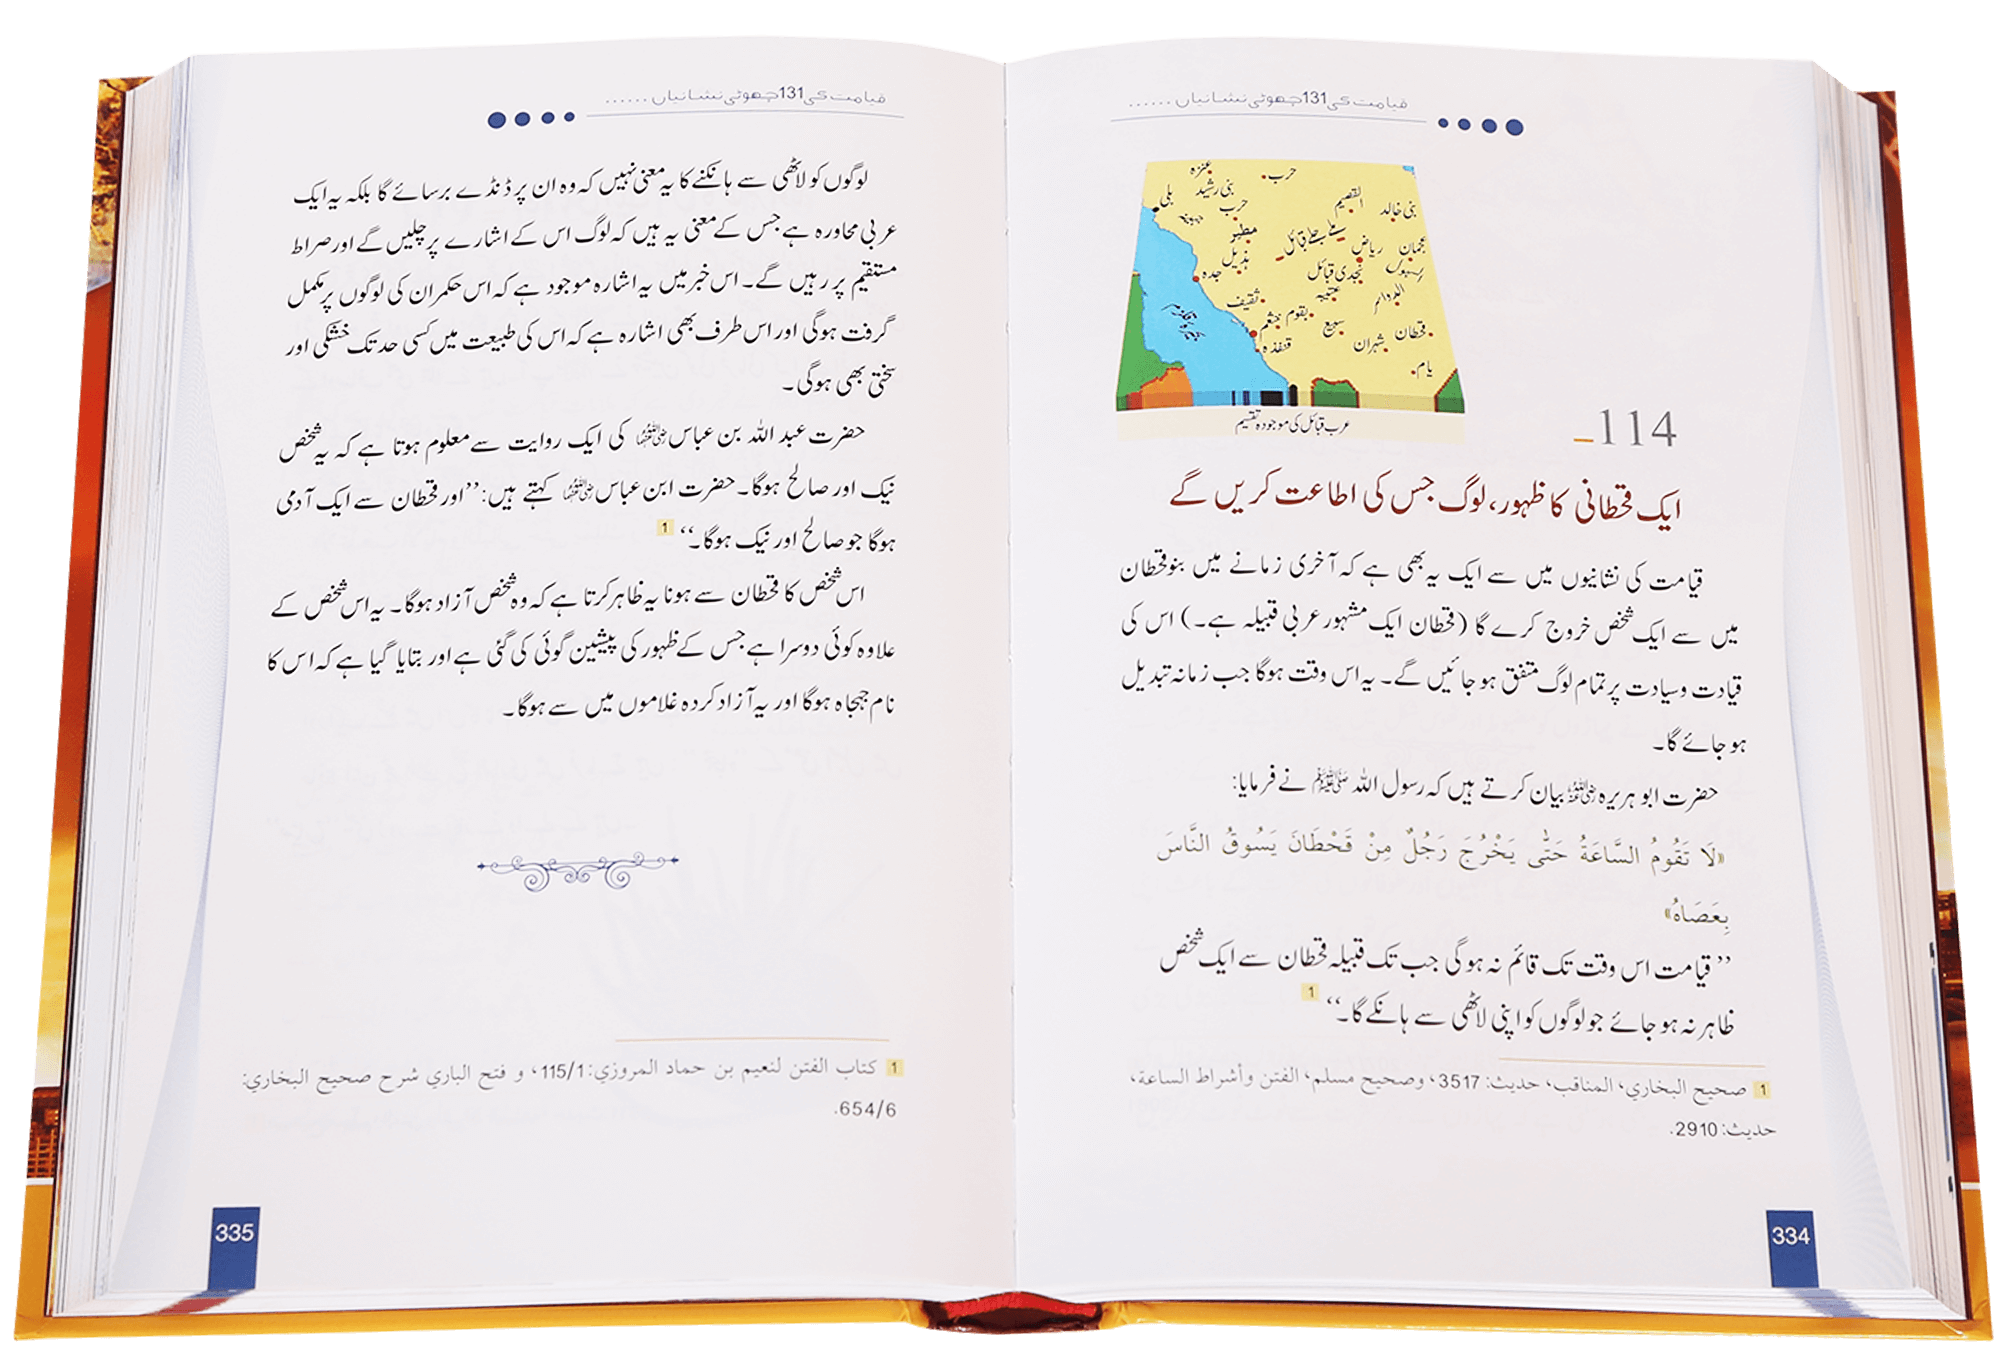 قیامت کی 131 چھوٹی نشانیاں ......
عنزہ
حرب
بنی رشید
بلی
حرب
جہینہ
القصیم
بنی خالد
مطیر
ملے جلے قبائل
ریاض
عجمان
ہذیل
جدہ
نجدی قبائل
عتیبہ
الدواسر
ثقیف
بقوم
خثعم
سبیع
قحطان
شہران
قنفذہ
یام
بحیرۂ قلزم
عرب قبائل کی موجودہ تقسیم
114
ایک قحطانی کا ظہور، لوگ جس کی اطاعت کریں گے
قیامت کی نشانیوں میں سے ایک یہ بھی ہے کہ آخری زمانے میں بنو قحطان
میں سے ایک شخص خروج کرے گا (قحطان ایک مشہور عربی قبیلہ ہے۔) اس کی
قیادت وسیادت پر تمام لوگ متفق ہو جائیں گے۔ یہ اس وقت ہوگا جب زمانہ تبدیل
ہو جائے گا۔
حضرت ابو ہریرہ رضی اللہ عنہ بیان کرتے ہیں کہ رسول اللہ ﷺ نے فرمایا:
«لَا تَقُومُ السَّاعَةُ حَتّٰى يَخْرُجَ رَجُلٌ مِنْ قَحْطَانَ يَسُوقُ النَّاسَ
بِعَصَاهُ»
’’قیامت اس وقت تک قائم نہ ہوگی جب تک قبیلہ قحطان سے ایک شخص
ظاہر نہ ہو جائے جو لوگوں کو اپنی لاٹھی سے ہانکے گا۔‘‘ 1
1 صحيح البخاري، المناقب، حديث: 3517، وصحيح مسلم، الفتن وأشراط الساعة،
حديث: 2910.
334
قیامت کی 131 چھوٹی نشانیاں ......
لوگوں کو لاٹھی سے ہانکنے کا یہ معنی نہیں کہ وہ ان پر ڈنڈے برسائے گا بلکہ یہ ایک
عربی محاورہ ہے جس کے معنی یہ ہیں کہ لوگ اس کے اشارے پر چلیں گے اور صراط
مستقیم پر رہیں گے۔ اس خبر میں یہ اشارہ موجود ہے کہ اس حکمران کی لوگوں پر مکمل
گرفت ہوگی اور اس طرف بھی اشارہ ہے کہ اس کی طبیعت میں کسی حد تک خشکی اور
سختی بھی ہوگی۔
حضرت عبد اللہ بن عباس رضی اللہ عنہما کی ایک روایت سے معلوم ہوتا ہے کہ یہ شخص
نیک اور صالح ہوگا۔ حضرت ابن عباس رضی اللہ عنہما کہتے ہیں: ’’اور قحطان سے ایک آدمی
ہوگا جو صالح اور نیک ہوگا۔‘‘ 1
اس شخص کا قحطان سے ہونا یہ ظاہر کرتا ہے کہ وہ شخص آزاد ہوگا۔ یہ اس شخص کے
علاوہ کوئی دوسرا ہے جس کے ظہور کی پیشین گوئی کی گئی ہے اور بتایا گیا ہے کہ اس کا
نام جہجاہ ہوگا اور یہ آزاد کردہ غلاموں میں سے ہوگا۔
1 كتاب الفتن لنعيم بن حماد المروزي: 115/1، و فتح الباري شرح صحيح البخاري:
654/6.
335